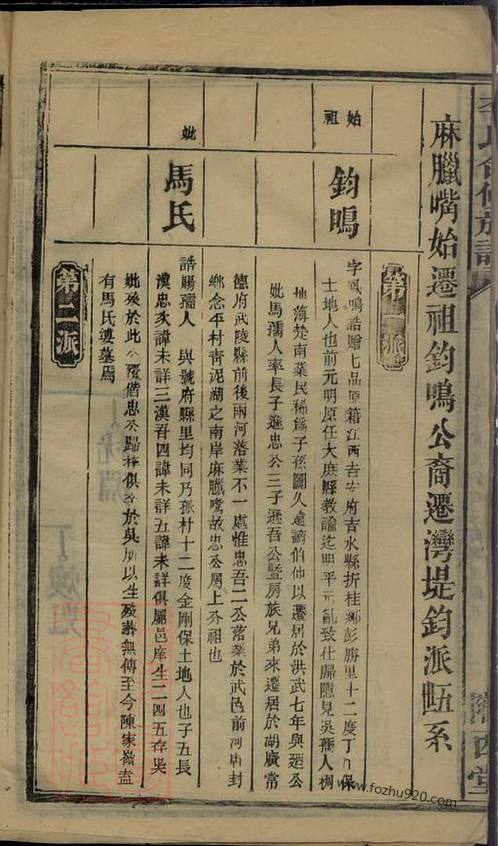 李氏合修族譜
隴西堂
麻臘嘴始遷祖鈞鳴公裔遷灣堤鈞派四系
第一派
始祖
鈞鳴
字鳳鳴誥贈七品原籍江西吉安府吉水縣折桂鄉彭勝里十二度丁八保
士地人也前元明原任大庶縣教諭迄明平元亂致仕歸隱見吳蕪人稠
地薄楚南業民稀為子孫圖久遠謫伯仲以遷居於洪武七年與廼公
妣馬孺人率長子遜忠公三子遜吾公暨房族兄弟來遷居於胡廣常
德府武陵縣前後兩河落業不一處惟忠吾二公落業於武邑前河南封
鄉念平村青泥湖之南岸麻臘嘴故忠公屬上分祖也
妣
馬氏
誥賜孺人 與號府縣里均同乃孤村十二度金剛保土地人也子五長
漢忠次諱未詳三漢吾四諱未詳五諱未詳俱屬邑庠生二四五存吳
妣歿於此公隨偕忠公歸梓俱終於吳所以生歿葬無傳至今陳家嶺盍
有馬氏婆墓焉
第二派
www.fozhu920.com